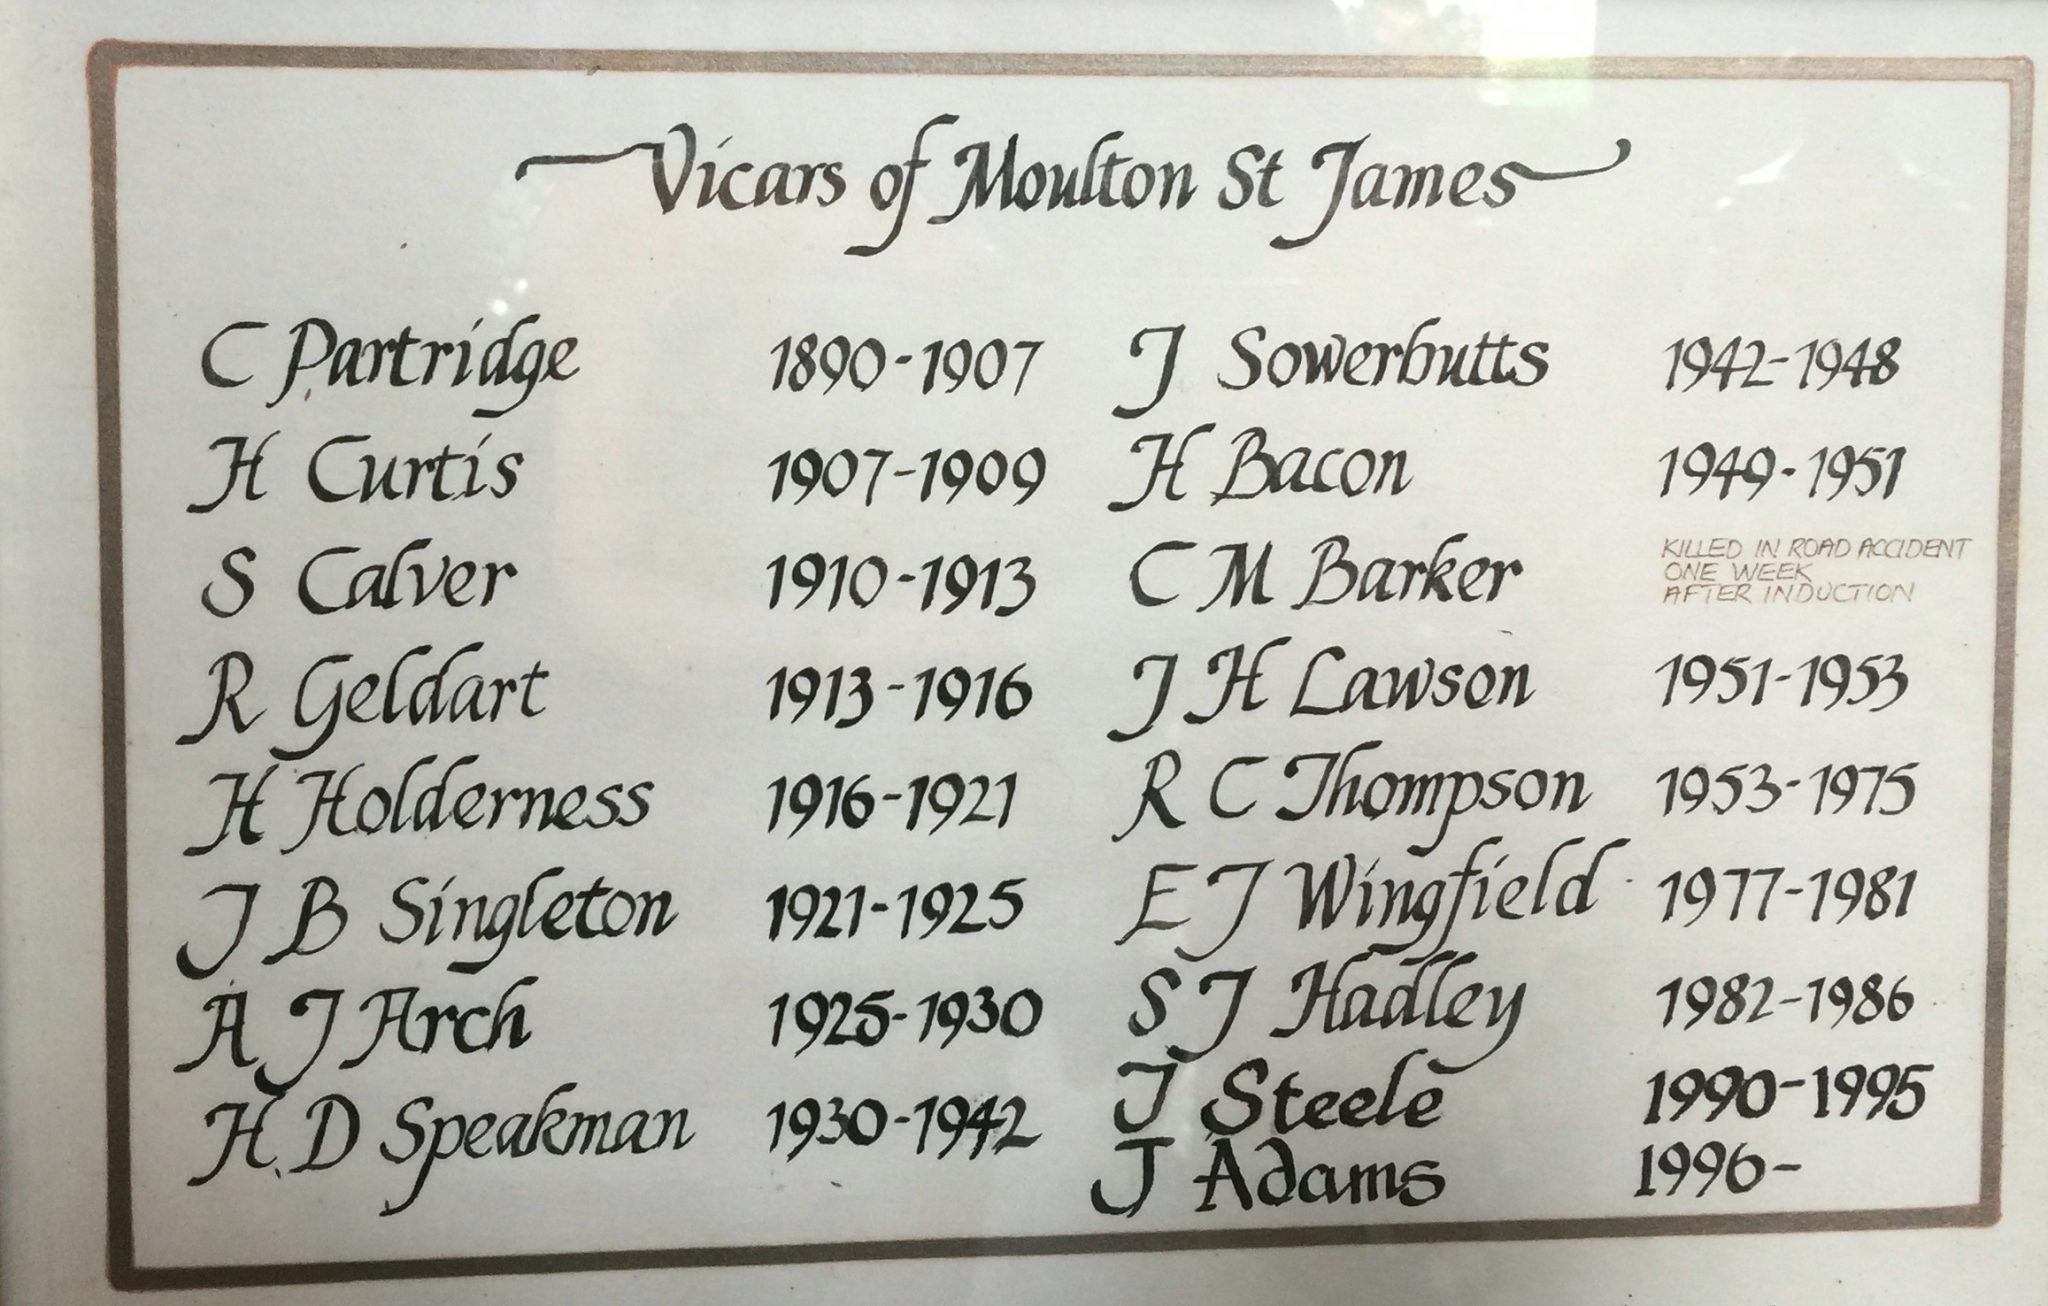 Vicars of Moulton St James
C Partridge 1890-1907
H Curtis 1907-1909
S Calver 1910-1913
R Geldart 1913-1916
H Holderness 1916-1921
J B Singleton 1921-1925
A J Arch 1925-1930
H D Speakman 1930-1942
J Sowerbutts 1942-1948
H Bacon 1949-1951
C M Barker KILLED IN ROAD ACCIDENT
ONE WEEK
AFTER INDUCTION
J H Lawson 1951-1953
R C Thompson 1953-1975
E J Wingfield 1977-1981
S J Hadley 1982-1986
J Steele 1990-1995
J Adams 1996-